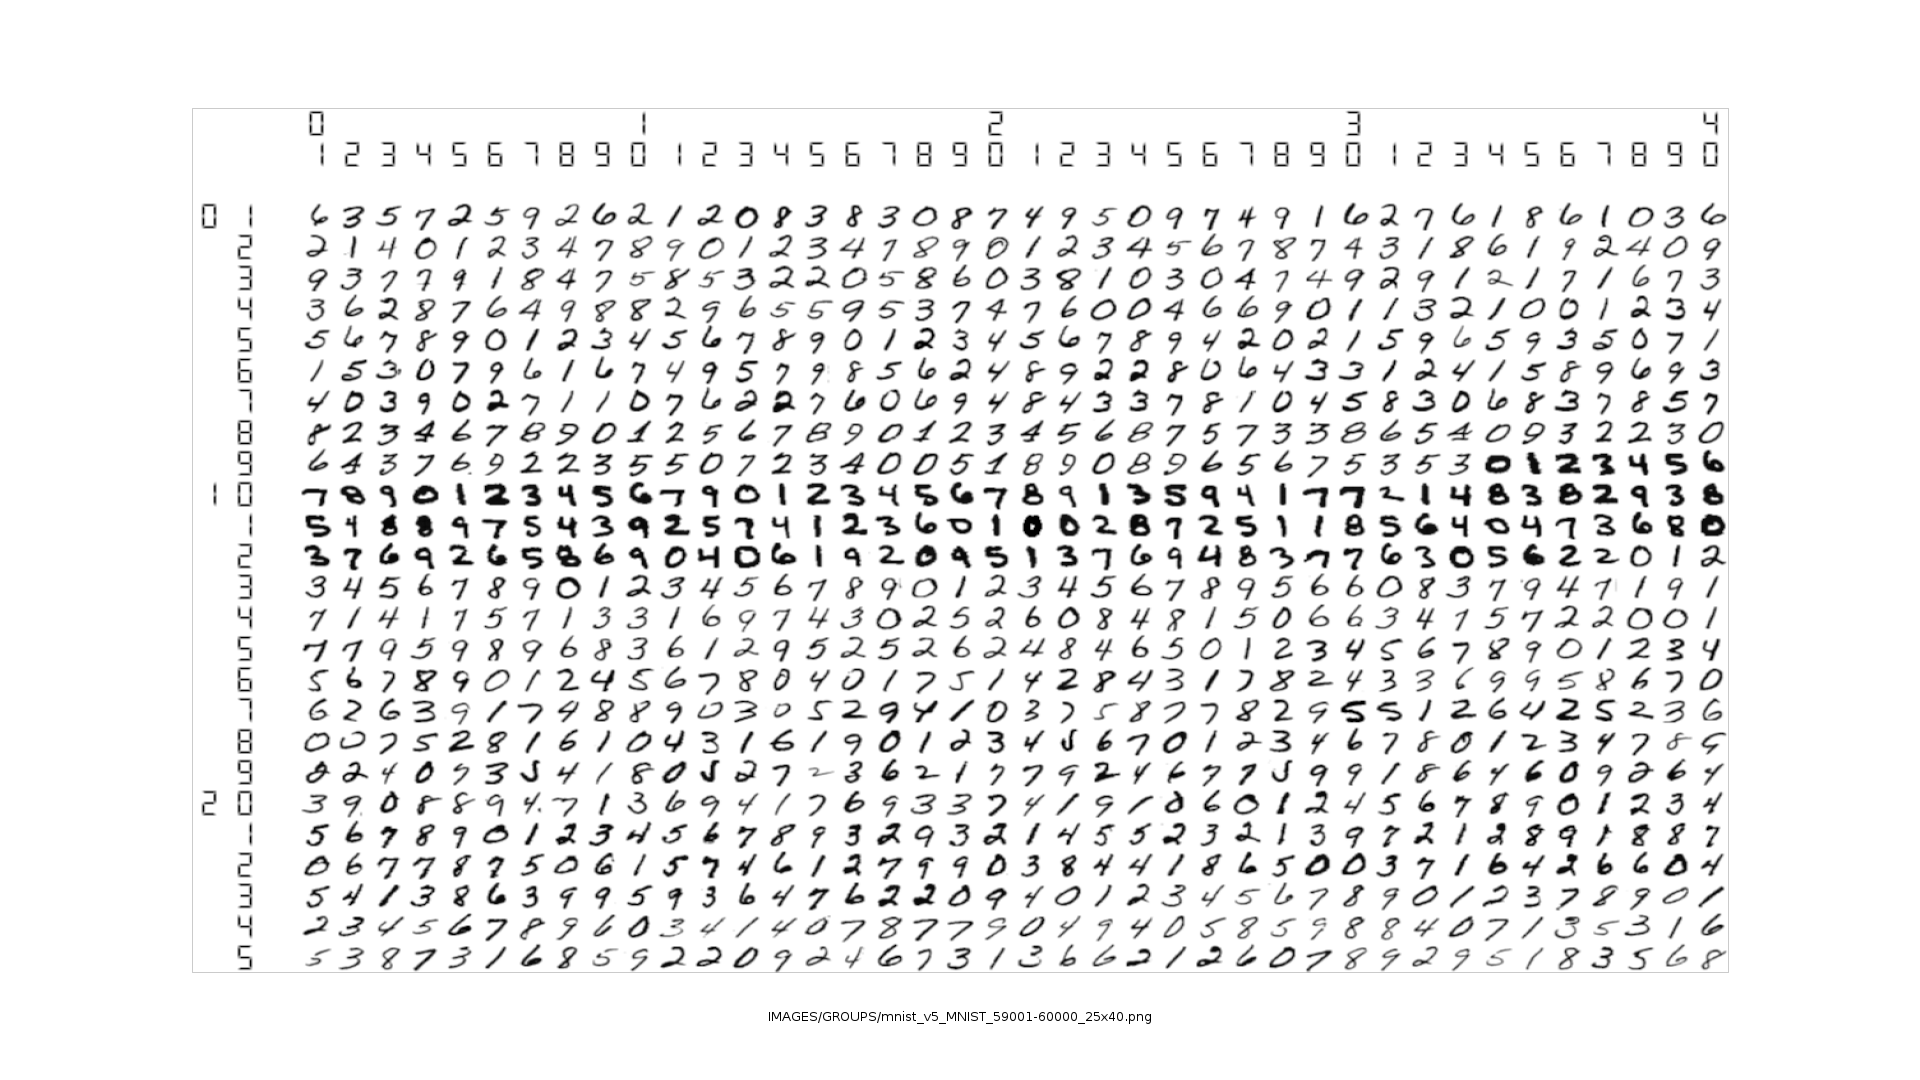 0 1 2 3 4
1 2 3 4 5 6 7 8 9 0 1 2 3 4 5 6 7 8 9 0 1 2 3 4 5 6 7 8 9 0 1 2 3 4 5 6 7 8 9 0
0 1 6 3 5 7 2 5 9 2 6 2 1 2 0 8 3 8 3 0 8 7 4 9 5 0 9 7 4 9 1 6 2 7 6 1 8 6 1 0 3 6
2 2 1 4 0 1 2 3 4 7 8 9 0 1 2 3 4 7 8 9 0 1 2 3 4 5 6 7 8 7 4 3 1 8 6 1 9 2 4 0 9
3 9 3 7 7 9 1 8 4 7 5 8 5 3 2 2 0 5 8 6 0 3 8 1 0 3 0 4 7 4 9 2 9 1 2 1 7 1 6 7 3
4 3 6 2 8 7 6 4 9 8 8 2 9 6 5 5 9 5 3 7 4 7 6 0 0 4 6 6 9 0 1 1 3 2 1 0 0 1 2 3 4
5 5 6 7 8 9 0 1 2 3 4 5 6 7 8 9 0 1 2 3 4 5 6 7 8 9 4 2 0 2 1 5 9 6 5 9 3 5 0 7 1
6 1 5 3 0 7 9 6 1 6 7 4 9 5 7 9 8 5 6 2 4 8 9 2 2 8 0 6 4 3 3 1 2 4 1 5 8 9 6 9 3
7 4 0 3 9 0 2 7 1 1 0 7 6 2 2 7 6 0 6 9 4 8 4 3 3 7 8 1 0 4 5 8 3 0 6 8 3 7 8 5 7
8 8 2 3 4 6 7 8 9 0 1 2 5 6 7 8 9 0 1 2 3 4 5 6 8 7 5 7 3 3 8 6 5 4 0 9 3 2 2 3 0
9 6 4 3 7 6 9 2 2 3 5 5 0 7 2 3 4 0 0 5 1 8 9 0 8 9 6 5 6 7 5 3 5 3 0 1 2 3 4 5 6
1 0 7 8 9 0 1 2 3 4 5 6 7 9 0 1 2 3 4 5 6 7 8 9 1 3 5 9 4 1 7 7 2 1 4 8 3 8 2 9 3 8
1 5 4 8 8 9 7 5 4 3 9 2 5 7 4 1 2 3 6 0 1 0 0 2 8 7 2 5 1 1 8 5 6 4 0 4 7 3 6 8 0
2 3 7 6 9 2 6 5 8 6 9 0 4 0 6 1 9 2 0 9 5 1 3 7 6 9 4 8 3 7 7 6 3 0 5 6 2 2 0 1 2
3 3 4 5 6 7 8 9 0 1 2 3 4 5 6 7 8 9 0 1 2 3 4 5 6 7 8 9 5 6 6 0 8 3 7 9 4 7 1 9 1
4 7 1 4 1 7 5 7 1 3 3 1 6 9 7 4 3 0 2 5 2 6 0 8 4 8 1 5 0 6 6 3 4 7 5 7 2 2 0 0 1
5 7 7 9 5 9 8 9 6 8 3 6 1 2 9 5 2 5 2 6 2 4 8 4 6 5 0 1 2 3 4 5 6 7 8 9 0 1 2 3 4
6 5 6 7 8 9 0 1 2 4 5 6 7 8 0 4 0 1 7 5 1 4 2 8 4 3 1 7 8 2 4 3 3 6 9 9 5 8 6 7 0
7 6 2 6 3 9 1 7 4 8 8 9 0 3 0 5 2 9 4 1 0 3 7 5 8 7 7 8 2 9 5 5 1 2 6 4 2 5 2 3 6
8 0 0 7 5 2 8 1 6 1 0 4 3 1 6 1 9 0 1 2 3 4 5 6 7 0 1 2 3 4 6 7 8 0 1 2 3 4 7 8 9
9 0 2 4 0 7 3 5 4 1 8 0 5 2 7 2 3 6 2 1 7 7 9 2 4 6 7 7 5 9 9 1 8 6 4 6 0 9 2 6 4
2 0 3 9 0 8 8 9 4 7 1 3 6 9 4 1 7 6 9 3 3 7 4 1 9 1 0 6 0 1 2 4 5 6 7 8 9 0 1 2 3 4
1 5 6 7 8 9 0 1 2 3 4 5 6 7 8 9 3 2 9 3 2 1 4 5 5 2 3 2 1 3 9 7 2 1 2 8 9 1 8 8 7
2 0 6 7 7 8 7 5 0 6 1 5 7 4 6 1 2 7 9 9 0 3 8 4 4 1 8 6 5 0 0 3 7 1 6 4 2 6 6 0 4
3 5 4 1 3 8 6 3 9 9 5 9 3 6 4 7 6 2 2 0 9 4 0 1 2 3 4 5 6 7 8 9 0 1 2 3 7 8 9 0 1
4 2 3 4 5 6 7 8 9 6 0 3 4 1 4 0 7 8 7 7 9 0 4 9 4 0 5 8 5 9 8 8 4 0 7 1 3 5 3 1 6
5 5 3 8 7 3 1 6 8 5 9 2 2 0 9 2 4 6 7 3 1 3 6 6 2 1 2 6 0 7 8 9 2 9 5 1 8 3 5 6 8
IMAGES/GROUPS/mnist_v5_MNIST_59001-60000_25x40.png